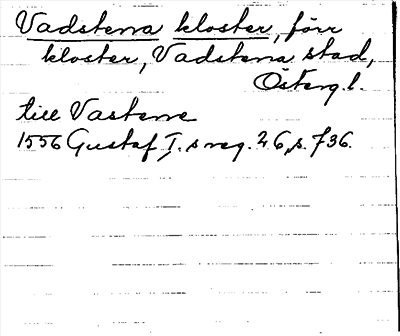 Vadstena kloster, förr
kloster, Vadstena stad,
Österg.l.
till Vastene
1556 Gustaf I:s reg. 26, s. 736.